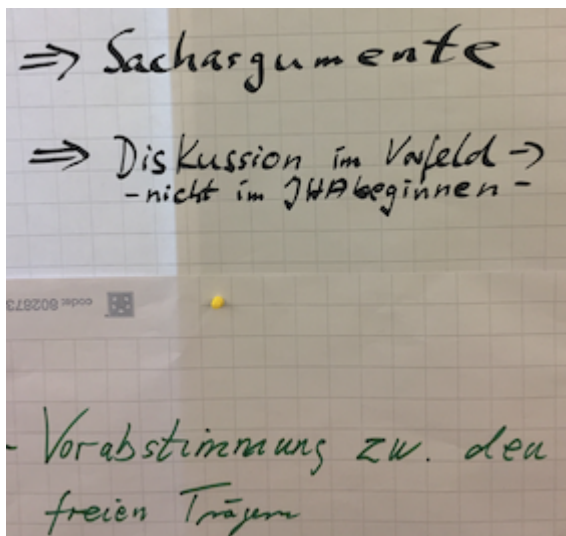 ⇒ Sachargumente
⇒ Diskussion im Vorfeld →
- nicht im JHA beginnen -
code: 802873
- Vorabstimmung zw. den
freien Trägern